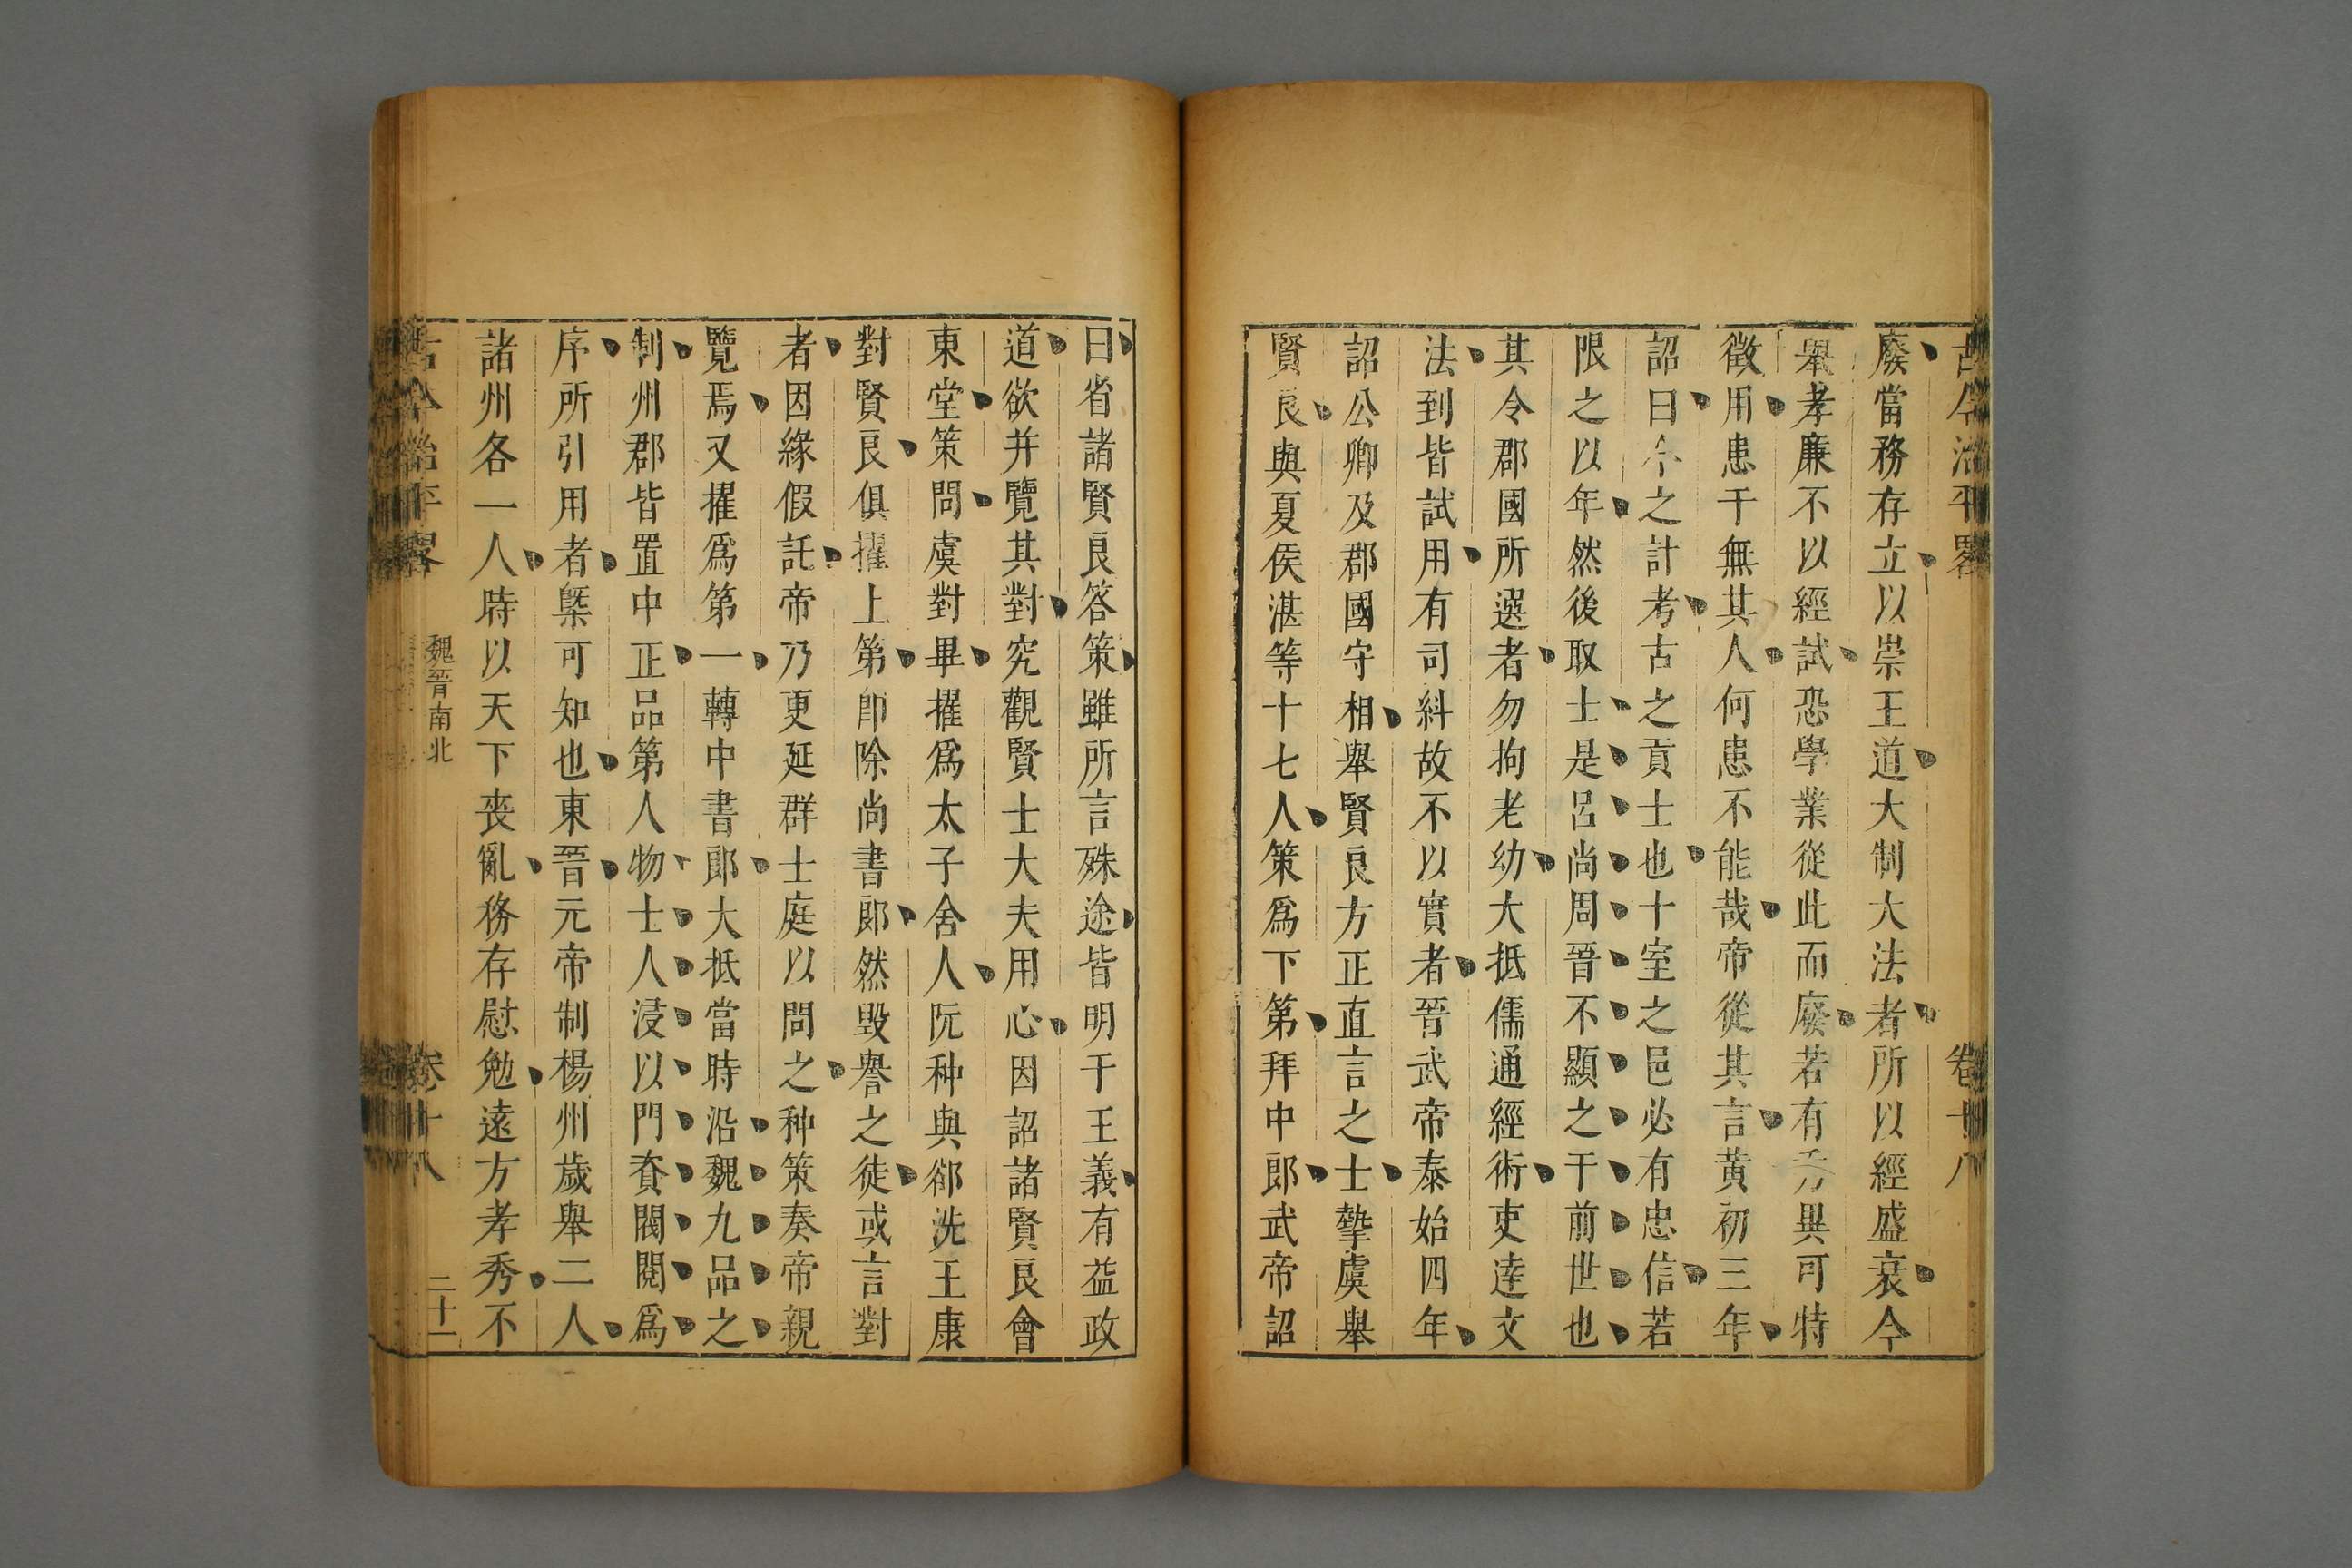 古今治平畧 卷十八
廢當務存立以崇王道大制大法者所以經盛衰今
舉孝廉不以經試恐學業從此而廢若有秀異可特
徵用患于無其人何患不能哉帝從其言黃初三年
詔曰今之計考古之貢士也十室之邑必有忠信若
限之以年然後取士是呂尚周晉不顯之于前世也
其令郡國所選者勿拘老幼大抵儒通經術吏達文
法到皆試用有司糾故不以實者晉武帝泰始四年
詔公卿及郡國守相舉賢良方正直言之士摯虞舉
賢良與夏侯湛等十七人策爲下第拜中郎武帝詔
曰省諸賢良答策雖所言殊途皆明于王義有益政
道欲并覽其對究觀賢士大夫用心因詔諸賢良會
東堂策問虞對畢擢爲太子舍人阮种與郤洗王康
對賢良俱擢上第即除尚書郎然毀譽之徒或言對
者因緣假託帝乃更延群士庭以問之种策奏帝親
覽焉又擢爲第一轉中書郎大抵當時沿魏九品之
制州郡皆置中正品第人物士人浸以門資閥閱爲
序所引用者槩可知也東晉元帝制楊州歲舉二人
諸州各一人時以天下喪亂務存慰勉遠方孝秀不
古今治平畧 魏晉南北 卷十八 二十一